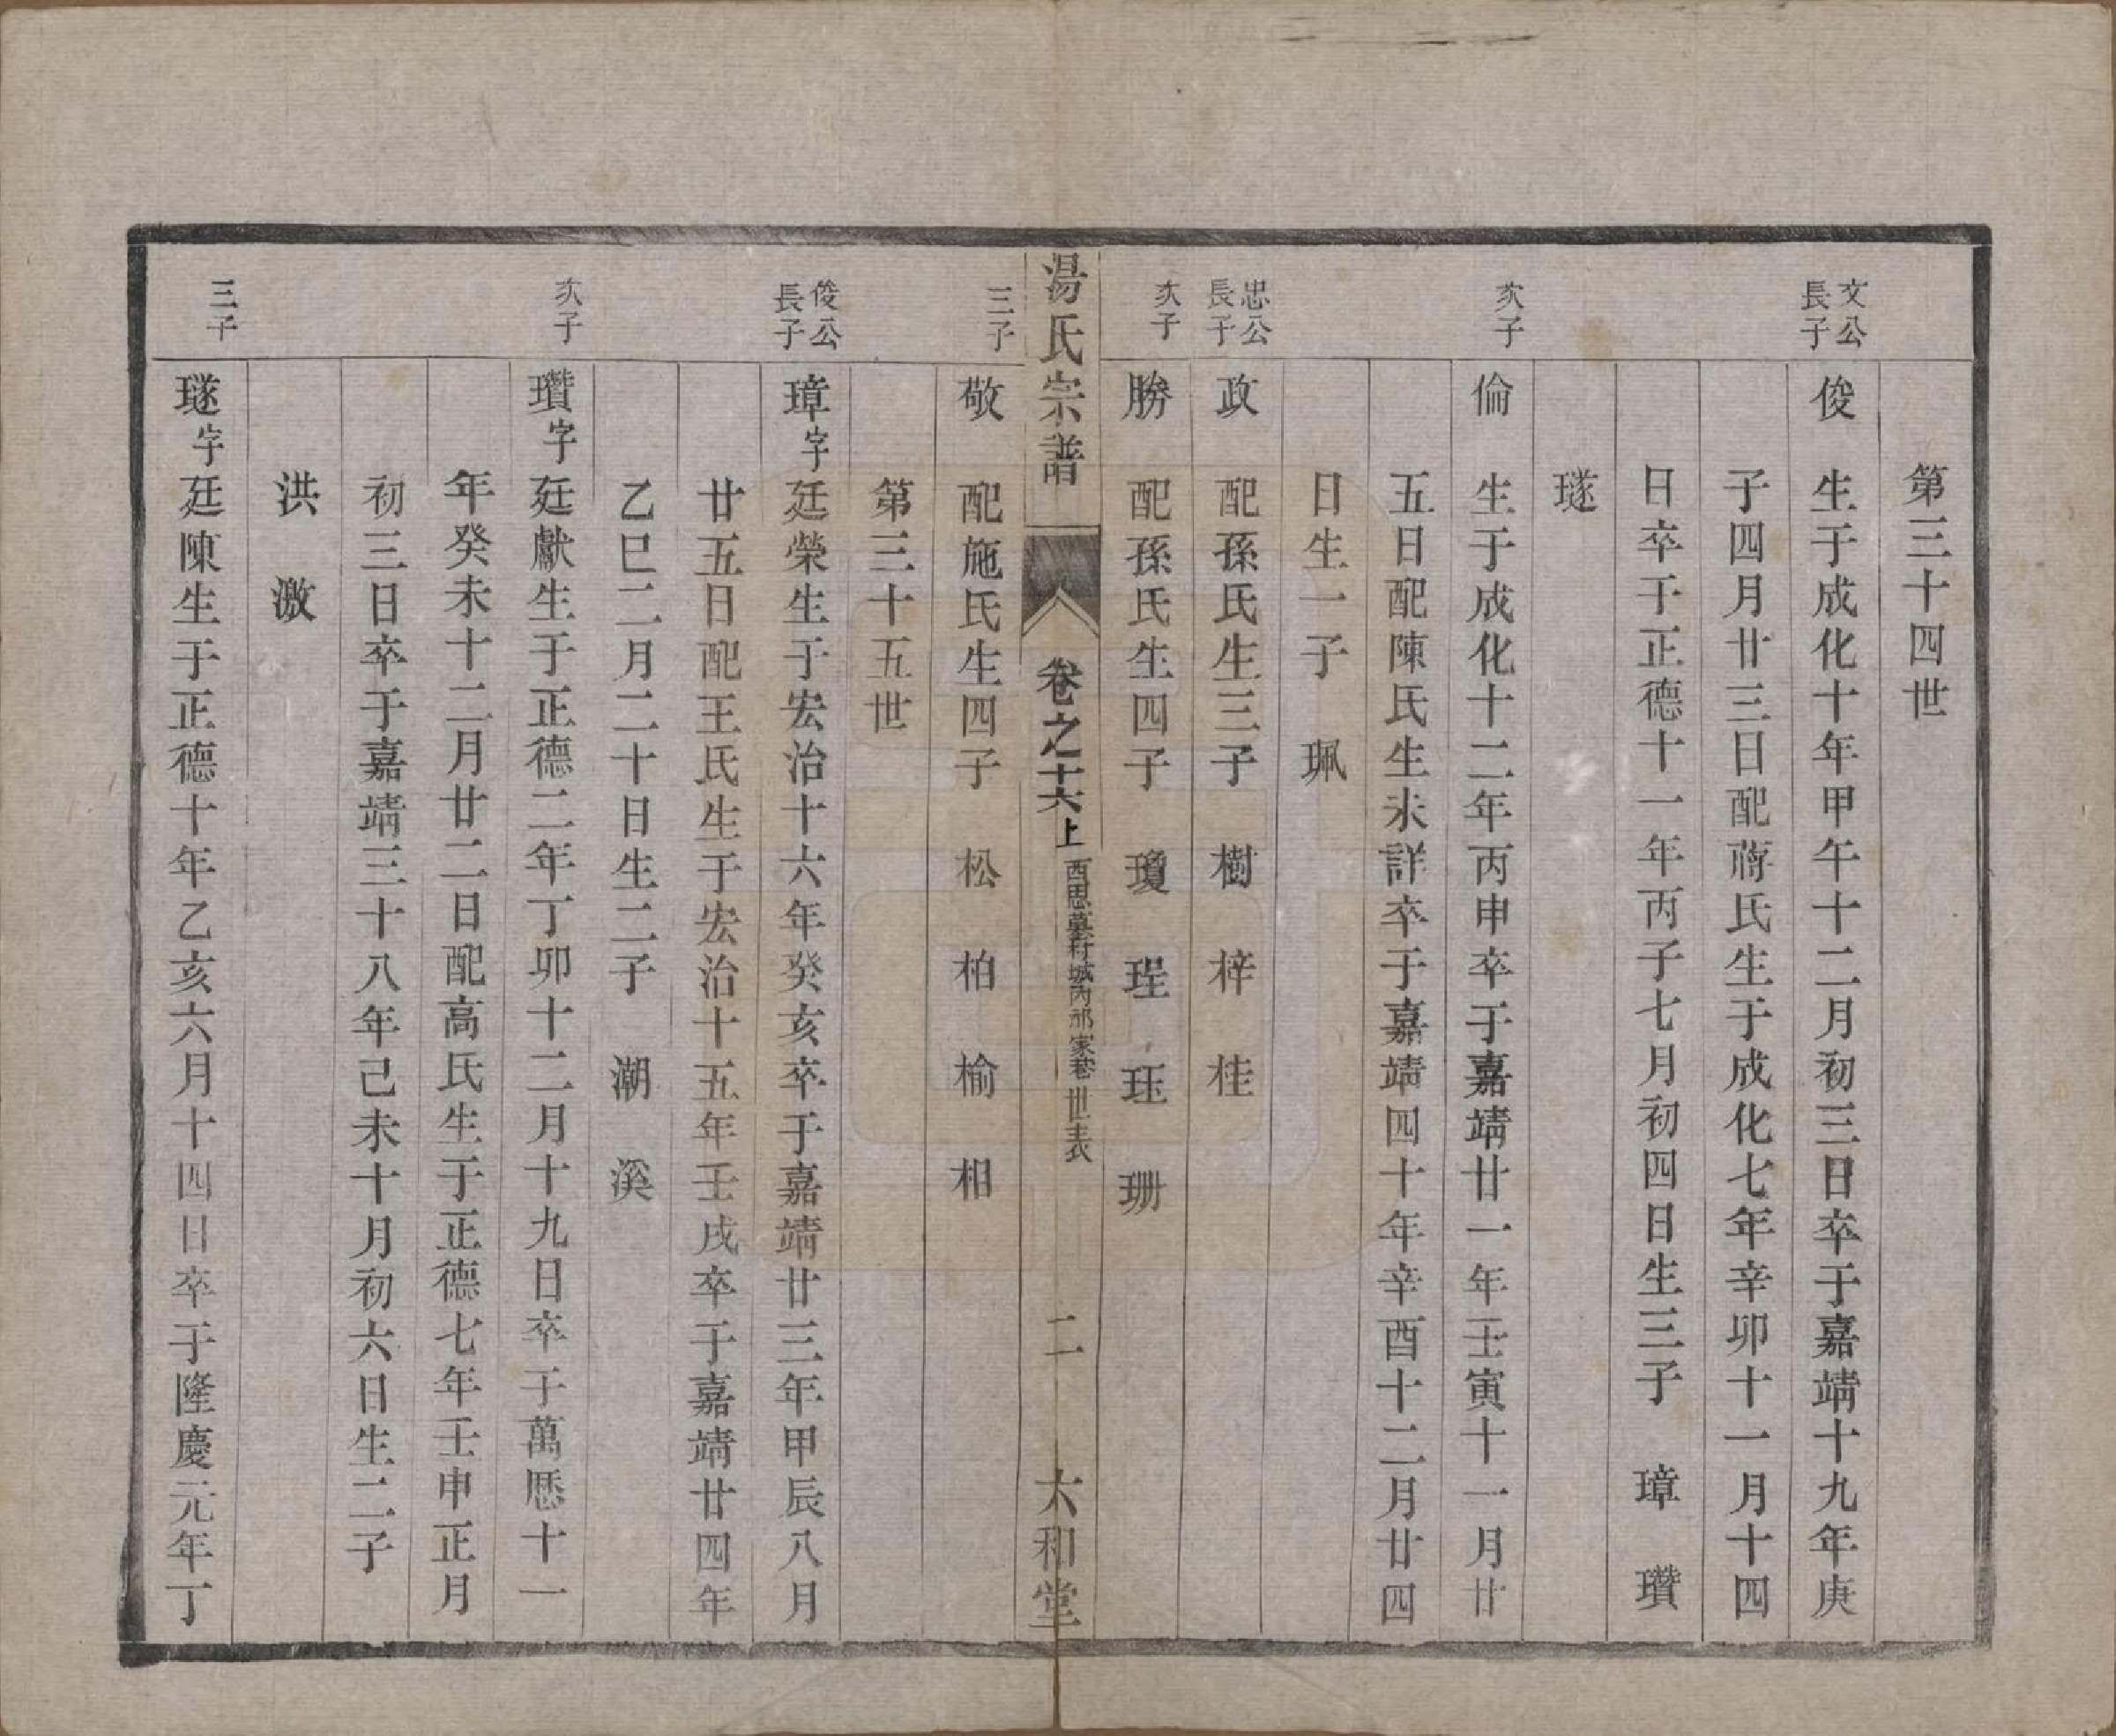 第三十四世
文公長子
俊　生于成化十年甲午十二月初三日卒于嘉靖十九年庚
子四月廿三日配蔣氏生于成化七年辛卯十一月十四
日卒于正德十一年丙子七月初四日生三子　璋　瓚
璲
次子
倫　生于成化十二年丙申卒于嘉靖廿一年壬寅十一月廿
五日配陳氏生未詳卒于嘉靖四十年辛酉十二月廿四
日生一子　珮
忠公長子
政　配孫氏生三子　樹　梓　桂
次子
勝　配孫氏生四子　瓊　珵　珏　珊
湯氏宗譜　卷之十六上　西思墓村城內祁家巷世表　二　六和堂
三子
敬　配施氏生四子　松　柏　榆　相
第三十五世
俊公長子
璋字廷榮生于宏治十六年癸亥卒于嘉靖廿三年甲辰八月
廿五日配王氏生于宏治十五年壬戌卒于嘉靖廿四年
乙巳二月二十日生二子　潮　溪
次子
瓚字廷獻生于正德二年丁卯十二月十九日卒于萬懸十一
年癸未十二月廿二日配高氏生于正德七年壬申正月
初三日卒于嘉靖三十八年己未十月初六日生二子
洪　激
三子
璲字廷陳生于正德十年乙亥六月十四日卒于隆慶元年丁